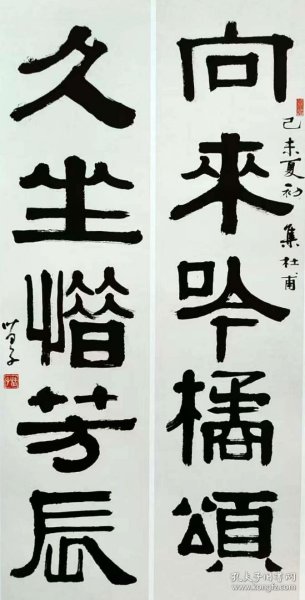 向來吟橘頌
己未夏初 集杜甫
久坐惜芳辰
孔夫子旧书网